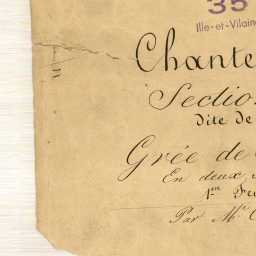 35
Ille-et-Vilain
Chante
Sectio
dite de
Grée de
En deux
1re Feu
Par Mr.